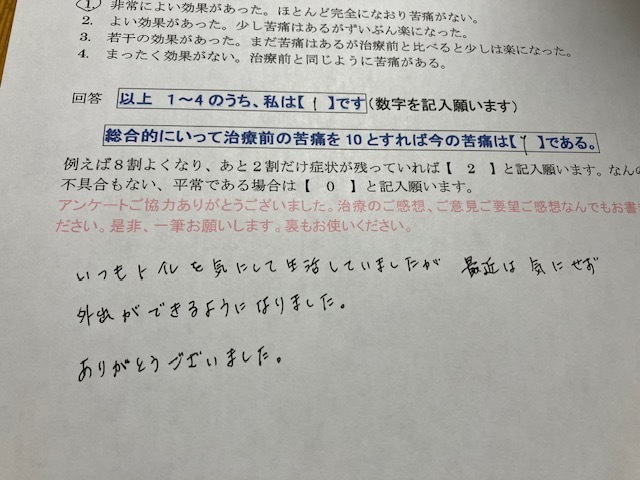 1. 非常によい効果があった。ほとんど完全になおり苦痛がない。
2. よい効果があった。少し苦痛はあるがずいぶん楽になった。
3. 若干の効果があった。まだ苦痛はあるが治療前と比べると少しは楽になった。
4. まったく効果がない。治療前と同じように苦痛がある。
回答 以上 1〜4のうち、私は【 1 】です(数字を記入願います)
総合的にいって治療前の苦痛を10とすれば今の苦痛は【 1 】である。
例えば8割よくなり、あと2割だけ症状が残っていれば【 2 】と記入願います。なんの
不具合もない、平常である場合は【 0 】と記入願います。
アンケートご協力ありがとうございました。治療のご感想、ご意見ご要望ご感想なんでもお書き
ださい。是非、一筆お願いします。裏もお使いください。
いつもトイレを気にして生活していましたが 最近は気にせず
外出ができるようになりました。
ありがとうございました。